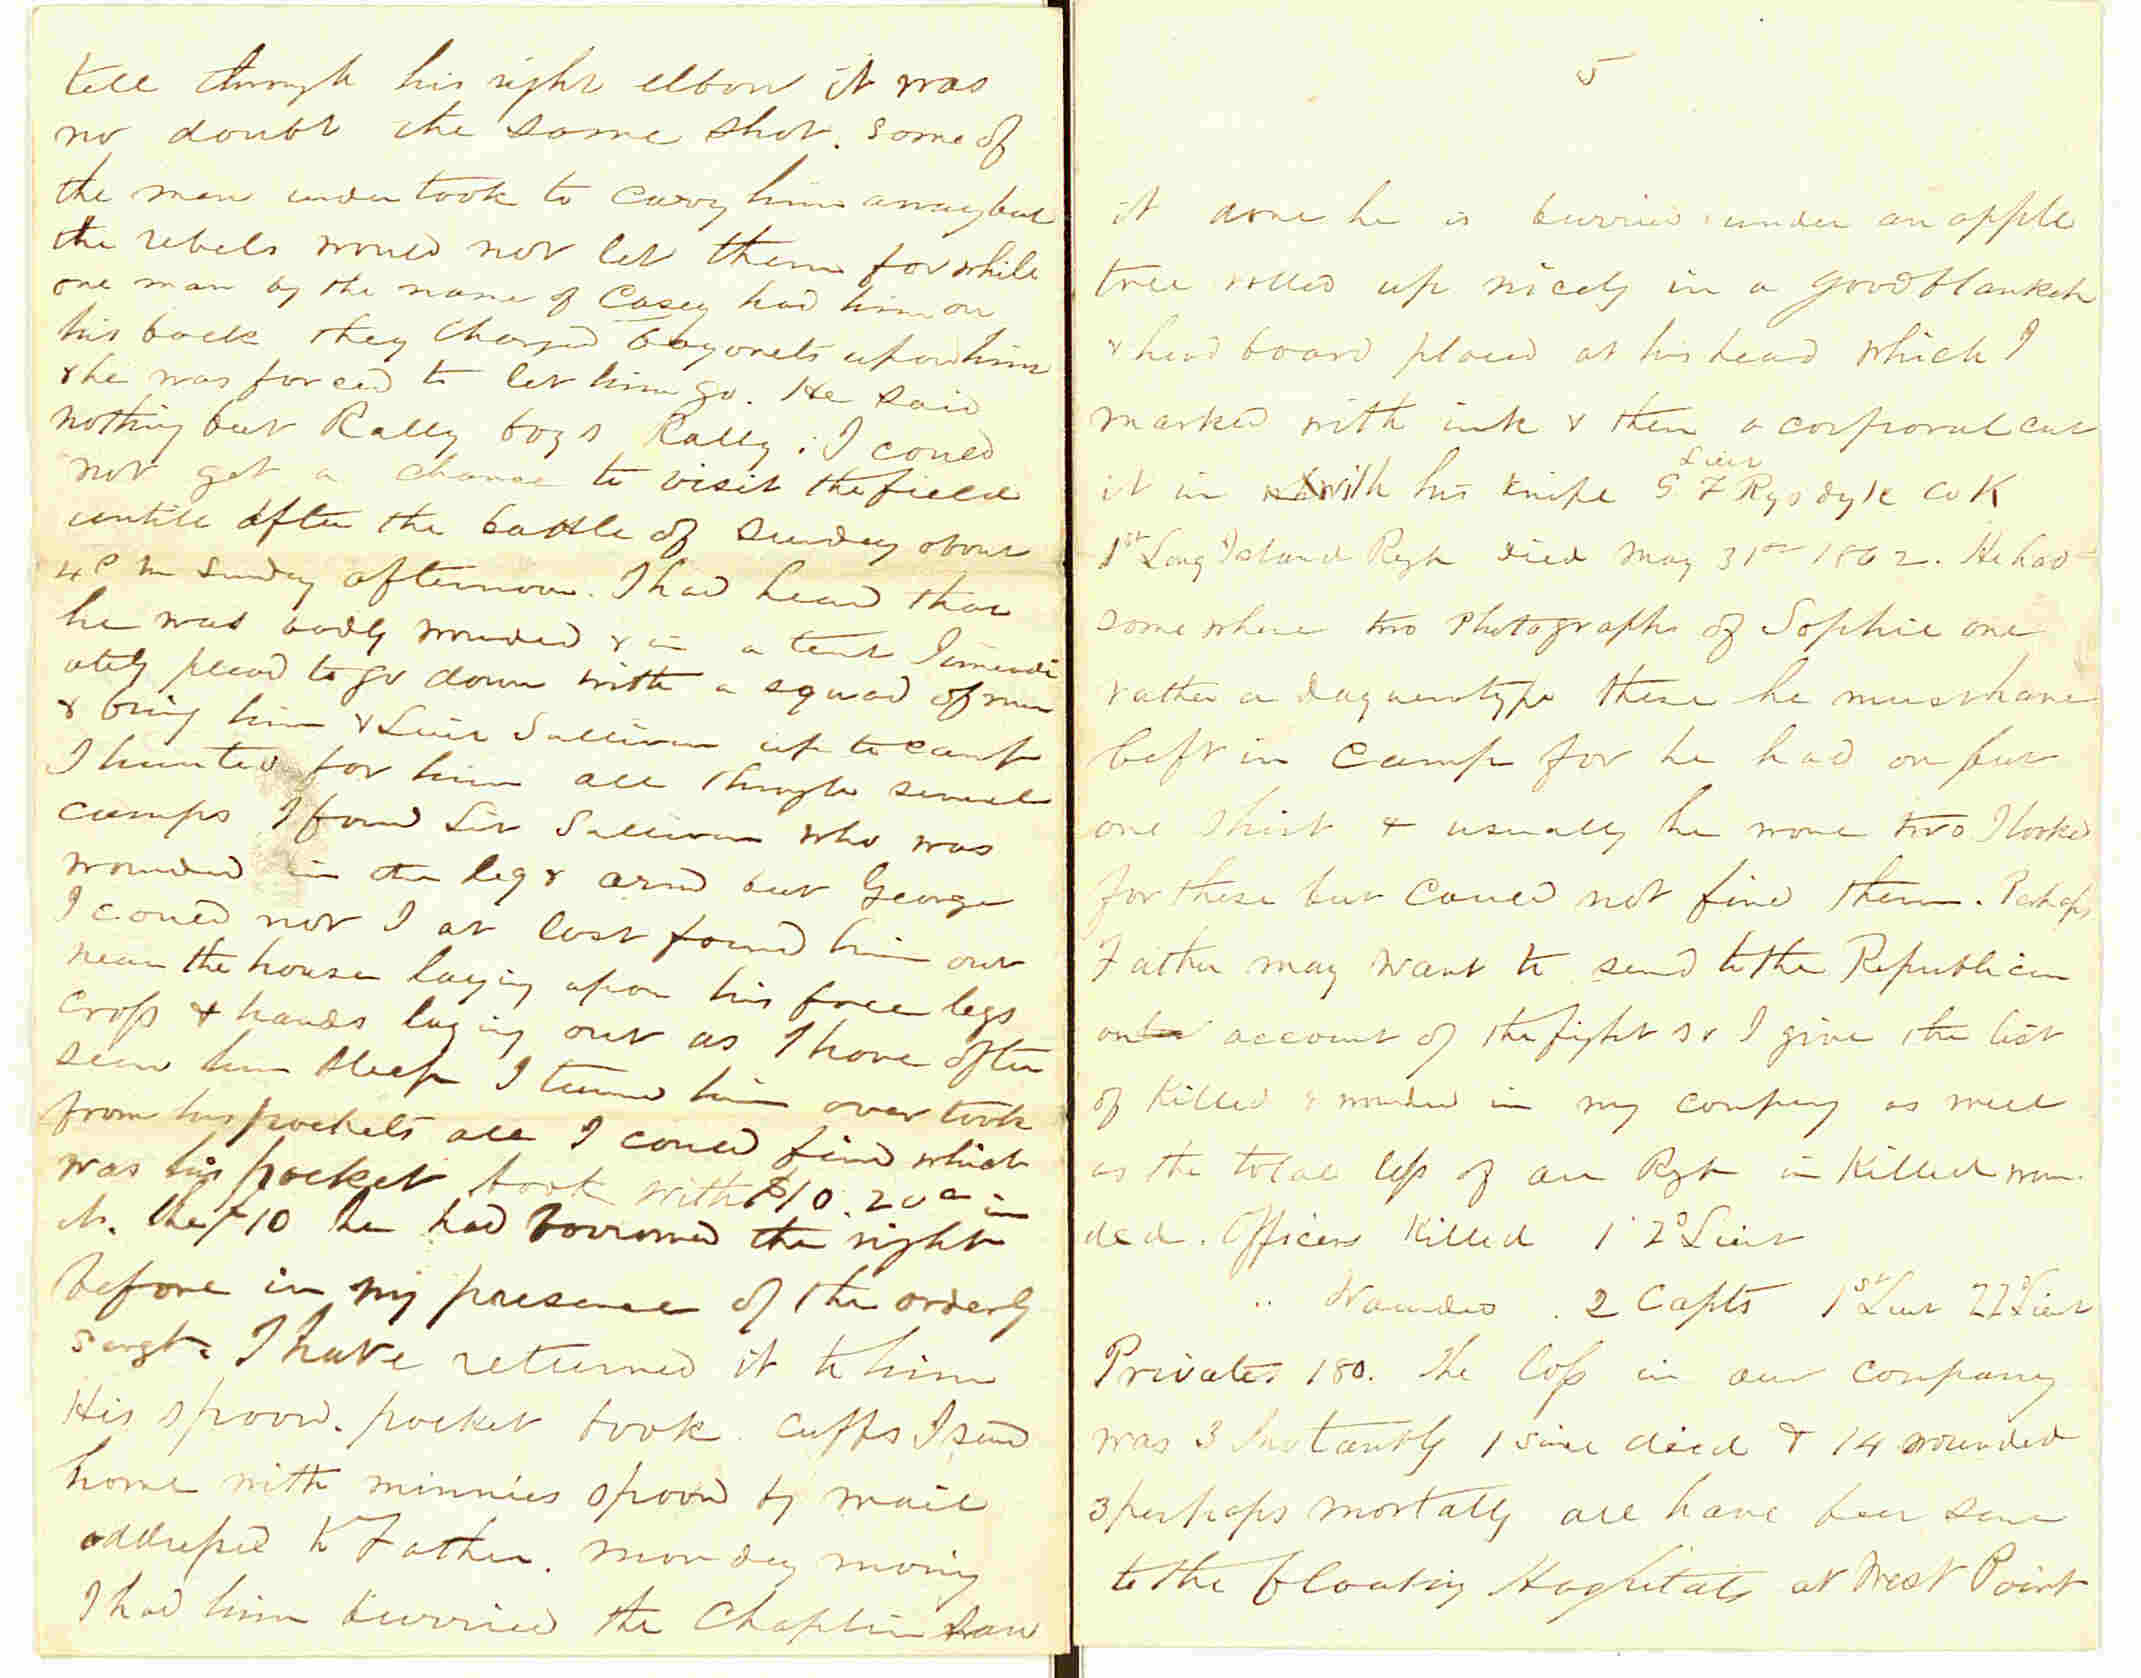 tell through his right elbow it was
no doubt the same shot. Some of
the men undertook to carry him away but
the rebels would not let them for while
one man by the name of Casey had him on
his back they charged bayonets upon him
& he was forced to let him go. He said
nothing but Rally boys Rally. I could
not get a chance to visit the field
untill after the battle of Sunday about
4 P m Sunday afternoon. I had heard that
he was badly wounded & in a tent I imendi
ately plead to go down with a squad of men
& bring him & Lieut Sullivan up to camp
I hunted for him all through several
camps I found Liu Sullivan who was
wounded in the leg & arm but George
I could not I at last found him out
near the house laying upon his face legs
cross & hands laying out as I have often
seen him sleep I turned him over took
from his pockets all I could find which
was his pocket book with $10.20 in
it. the $10 he had borrowed the night
before in my presence of the orderly
Sergt. I have returned it to him
His spoon. pocket book. cuffs I send
home with minnies spoon by mail
addressed to Father. monday moring
I had him burried the Chaplin saw
5
it done he is burried under an apple
tree rolled up nicely in a good blanket
& head board placed at his head which I
marked with ink & then a corporal cut
it in with his knife
Lieut
G F Rysdyk Co K
1st Long Island Regt died May 31st 1862. He had
some where two Photographs of Sophie one
rather a daguerotype these he must have
left in camp for he had on but
one shirt & usually he wore two I looked
for these but could not find them. Perhaps
Father may want to send to the Republican
an account of the fight so I give the list
of Killed & wounded in my company as well
as the total loss of our Regt in Killed woun
ded. Officers Killed 1 2d Lieut
" Wounded . 2 Capts 1st Lieut 2 2d Lieut
Privates 180. The loss in our company
was 3 Instantly 1 since died & 14 wounded
3 perhaps mortally all have been sent
to the floating Hospitals at West Point